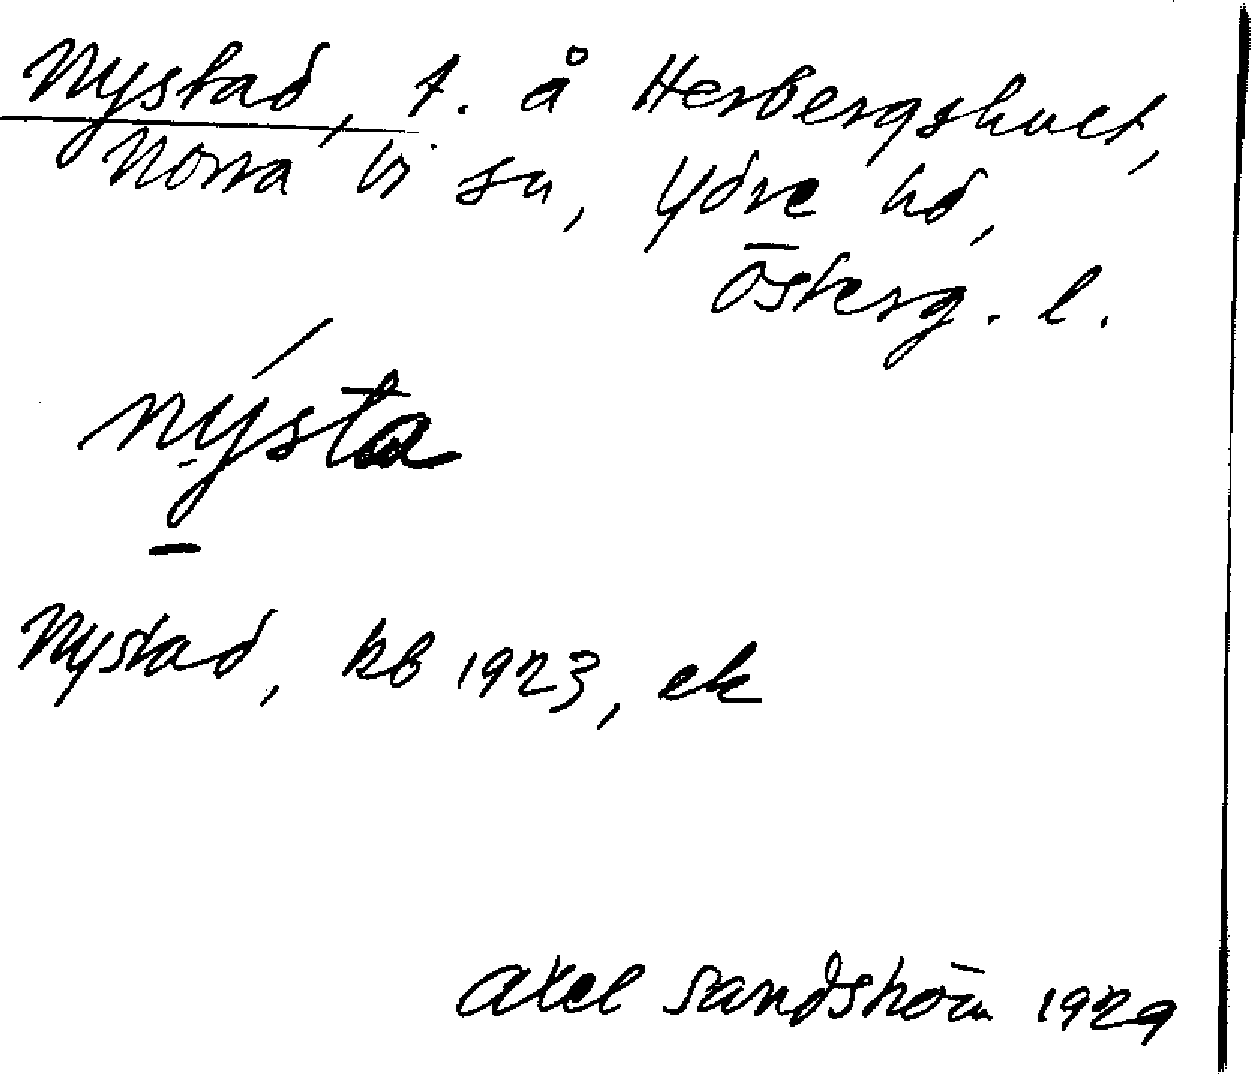 Nystad, t. å Herbergshult,
Norra Vi sn, Ydre hd,
Österg. l.
nýsta
Nystad, kb 1923, ek
Axel Sandström 1929